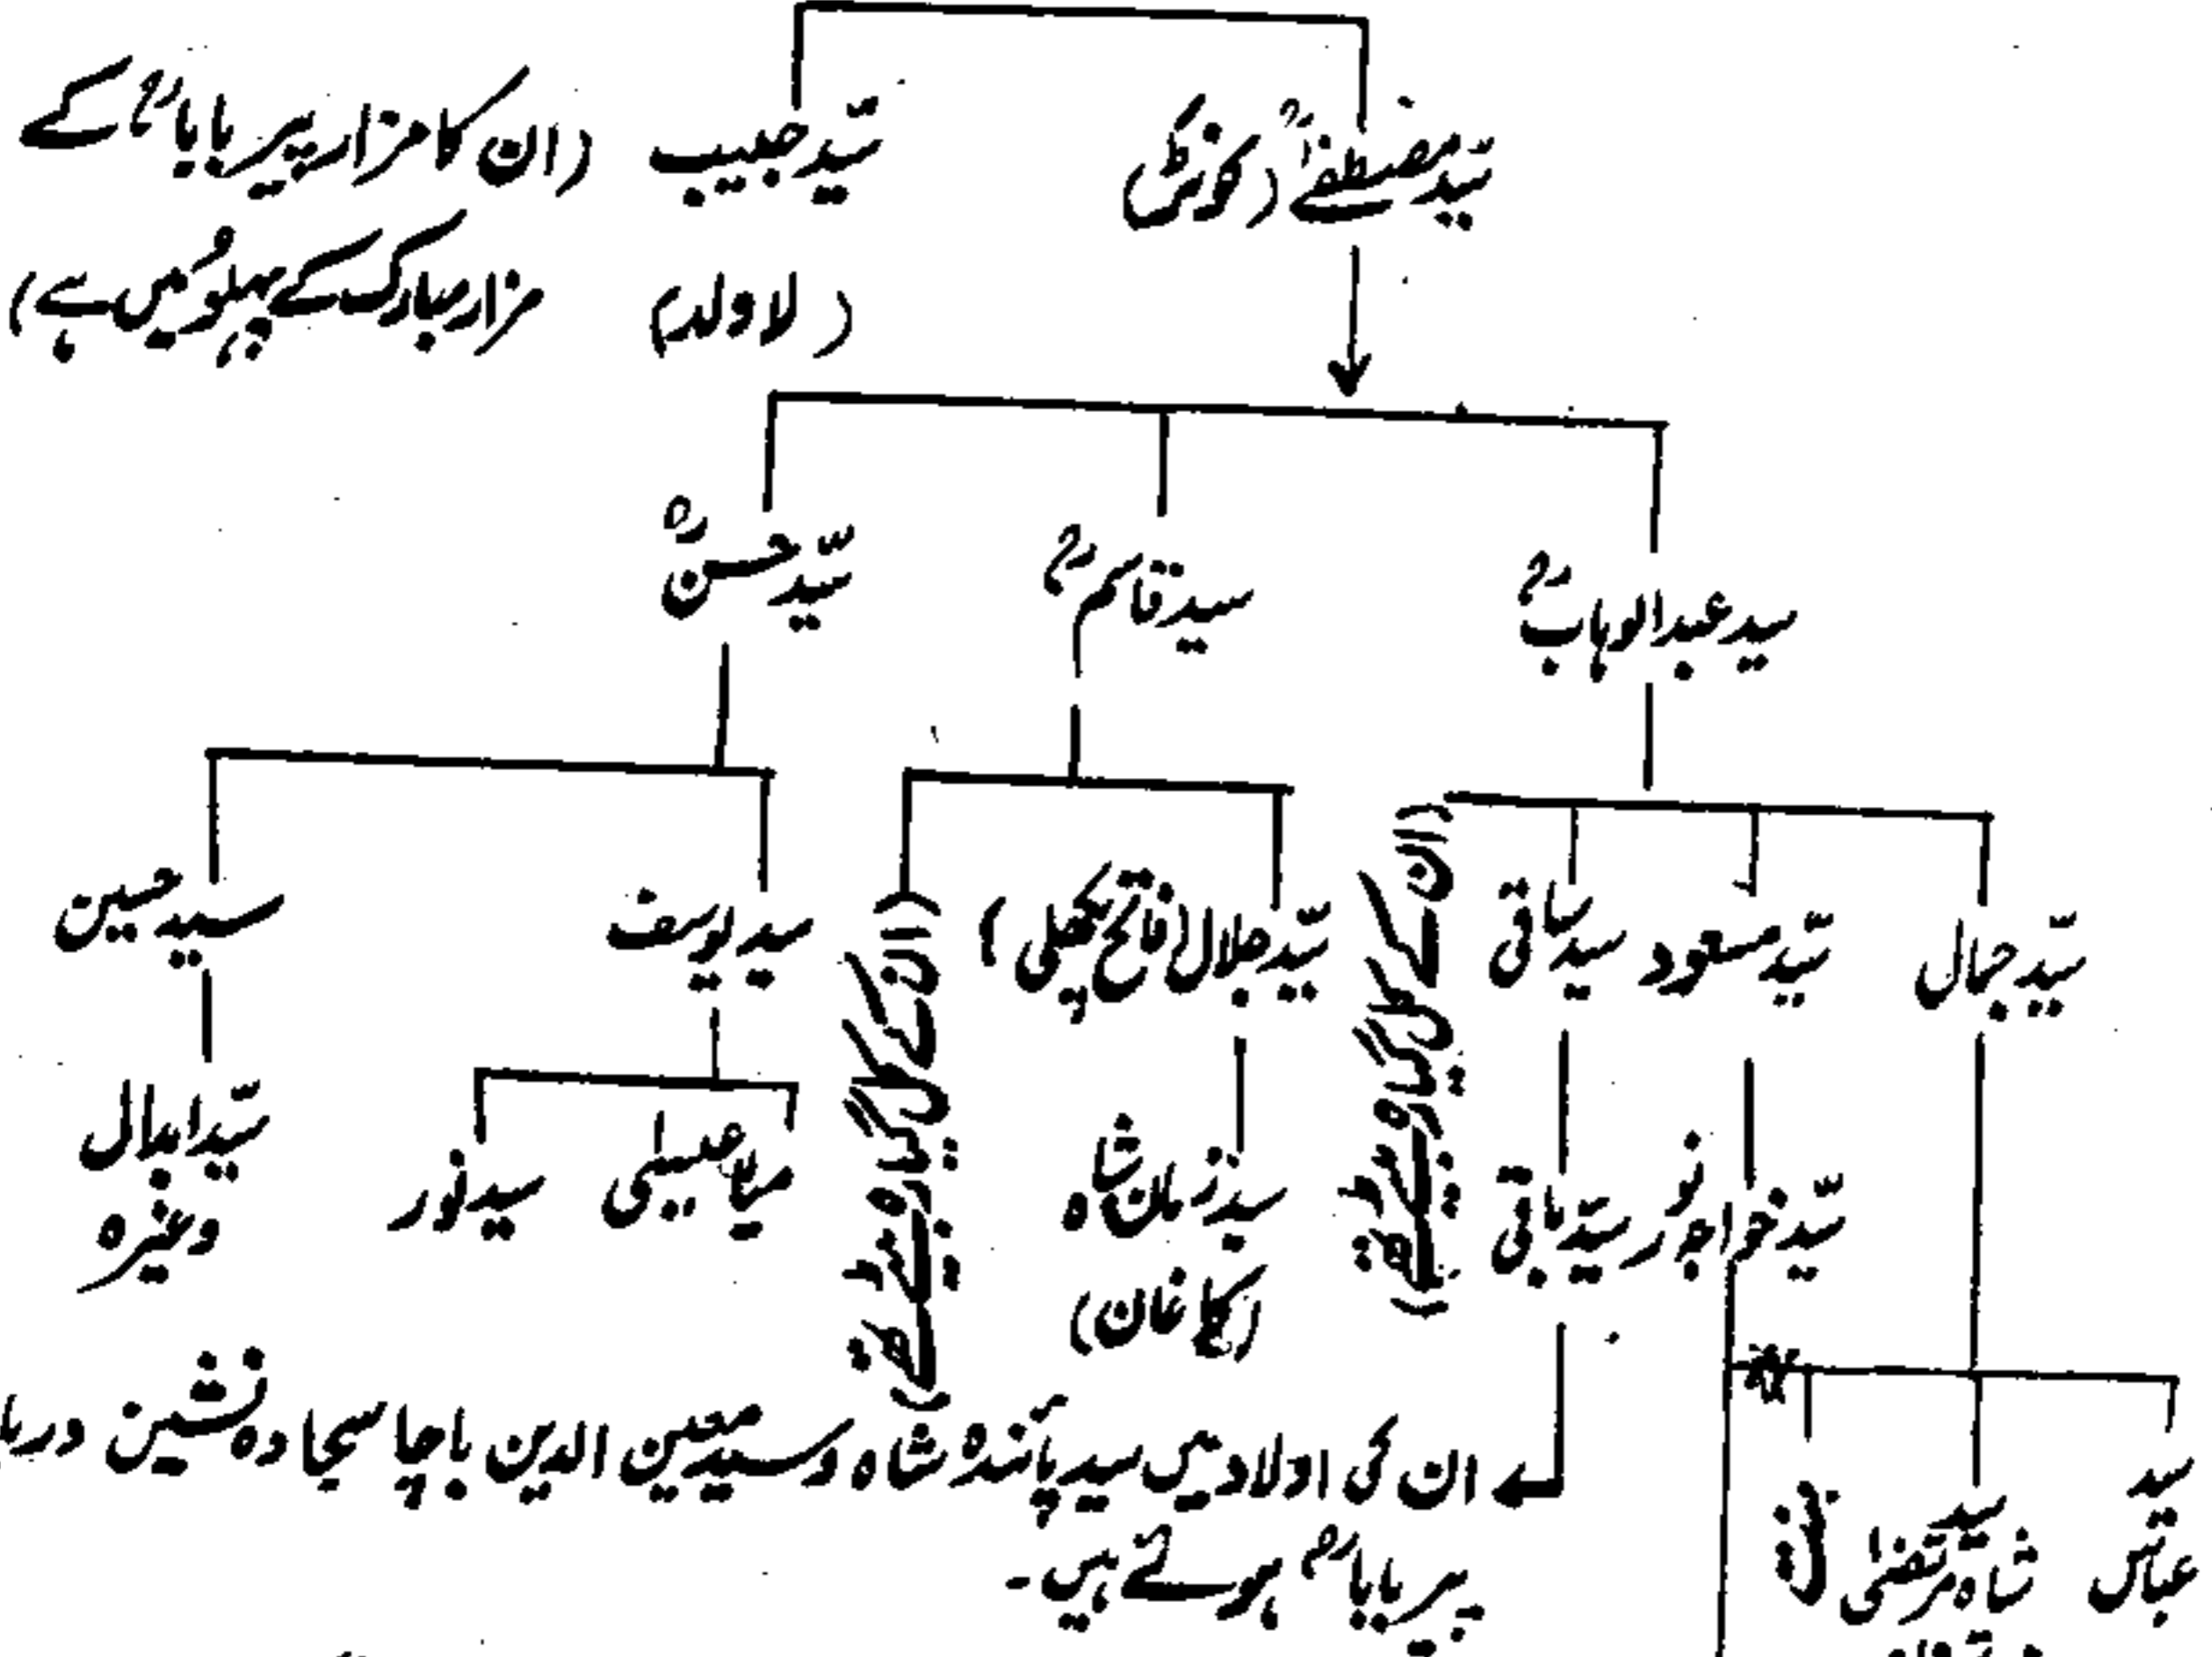 سیّد مصطفےٰؒ (کونڑئی) سیّد حبیب (ان کا مزار پیر باباؒ کے
(لا ولد) مزار مبارک کے پہلو میں ہے)
سید عبدالوہابؒ سید قاسمؒ سیّد حسنؒ
سیّد جمال سیّد مسعود سید ساقی سیّد جلال (فاتح پکھلی) سید یوسف سید حسین
سیّد خواجہ نور سیّد باقی سید زمان شاہ میاں عیسیٰ سید نور سیّد ابدال
(کاغان) وغیرہ
ان کی اولاد میں سید پائندہ شاہ و سید معین الدین باچا سجادہ نشین دربا
پیر باباؒ ہوئے ہیں۔
سید عباس سید شاہ مرتضیٰ